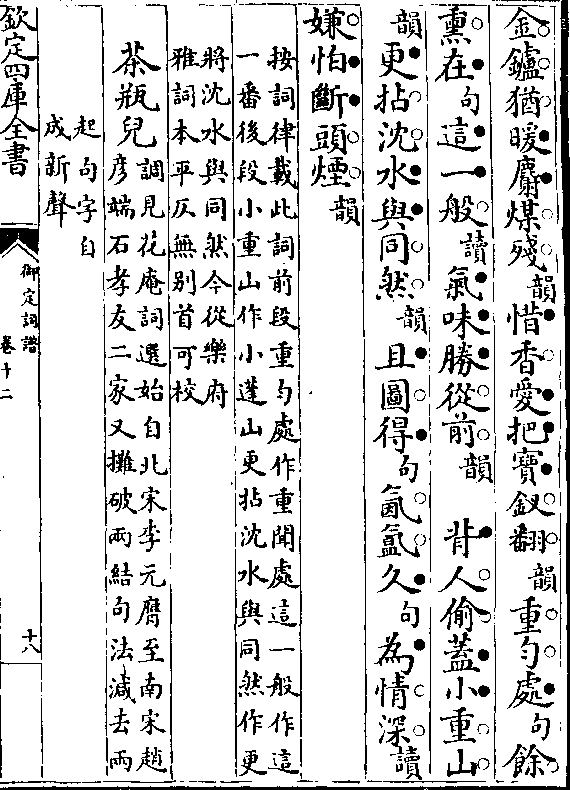 金鑪猶暖麝煤殘韻惜香愛把寶釵翻韻重勻處句餘
熏在句這一般讀氣味勝從前韻　背人偷蓋小重山
韻更拈沈水與同然韻且圖得句氤氳久句為情深讀
嫌怕斷頭煙韻
按詞律載此詞前段重勻處作重聞處這一般作這
一番後段小重山作小蓬山更拈沈水與同然作更
將沈水與同然今從樂府
雅詞本平仄無別首可校
茶瓶兒調見花庵詞選始自北宋李元膺至南宋趙
彥端石孝友二家又攤破兩結句法減去兩
起句字自
成新聲
欽定四庫全書
御定詞譜
卷十二
十八